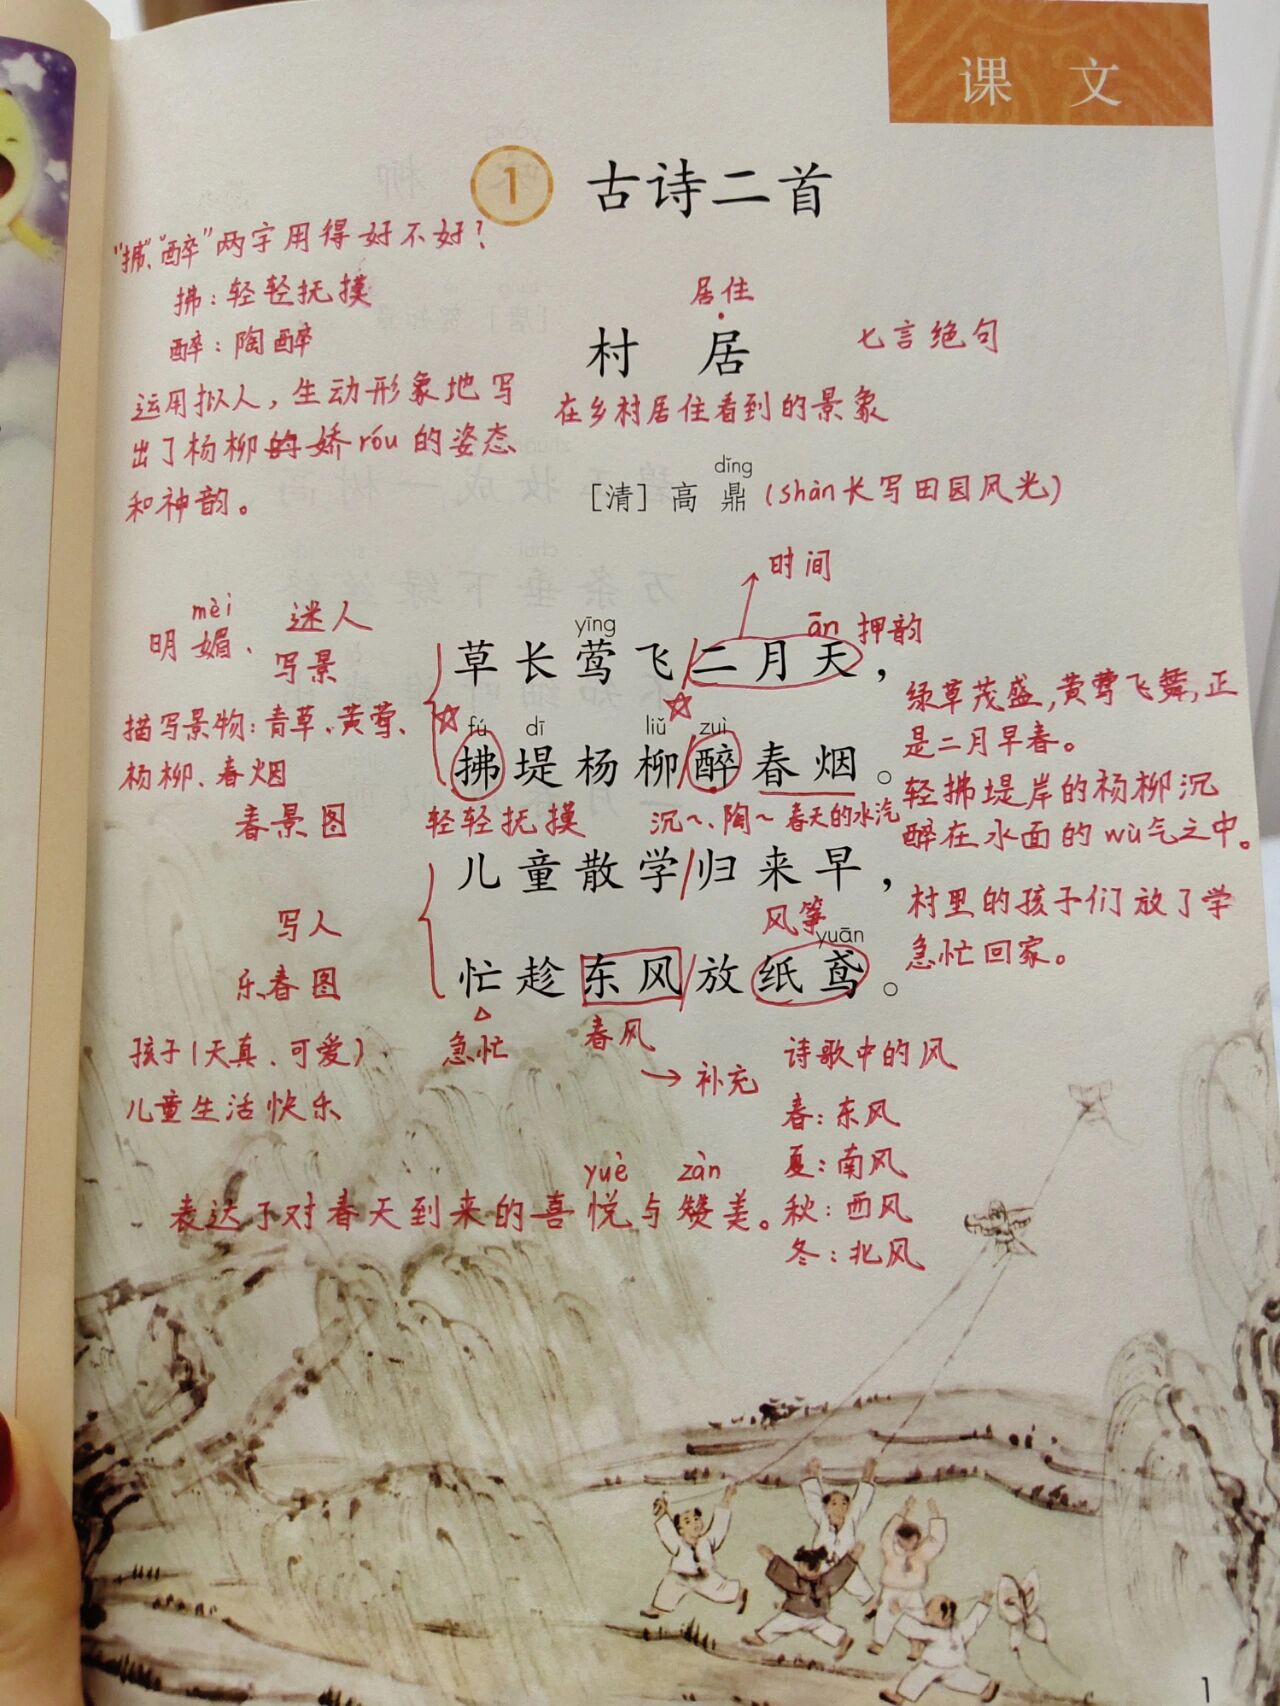 课 文
1 古诗二首
“拂”、“醉”两字用得好不好？
拂：轻轻抚摸
醉：陶醉
运用拟人，生动形象地写
出了杨柳的娇róu的姿态
和神韵。
居住
村 居
七言绝句
在乡村居住看到的景象
dǐng
［清］高 鼎
(shàn长写田园风光)
时间
mèi
明媚、迷人
写景
yīng
ān 押韵
草长莺飞/二月天，
描写景物：青草、黄莺、
杨柳、春烟
春景图
fú dī liǔ zuì
拂堤杨柳/醉春烟。
轻轻抚摸
沉~、陶~ 春天的水汽
绿草茂盛，黄莺飞舞，正
是二月早春。
轻拂堤岸的杨柳沉
醉在水面的wù气之中。
儿童散学/归来早，
写人
乐春图
风筝
yuān
忙趁东风/放纸鸢。
急忙
春风
村里的孩子们放了学
急忙回家。
孩子(天真、可爱)
儿童生活快乐
→ 补充
诗歌中的风
春：东风
夏：南风
秋：西风
冬：北风
yuè zàn
表达了对春天到来的喜悦与赞美。
1